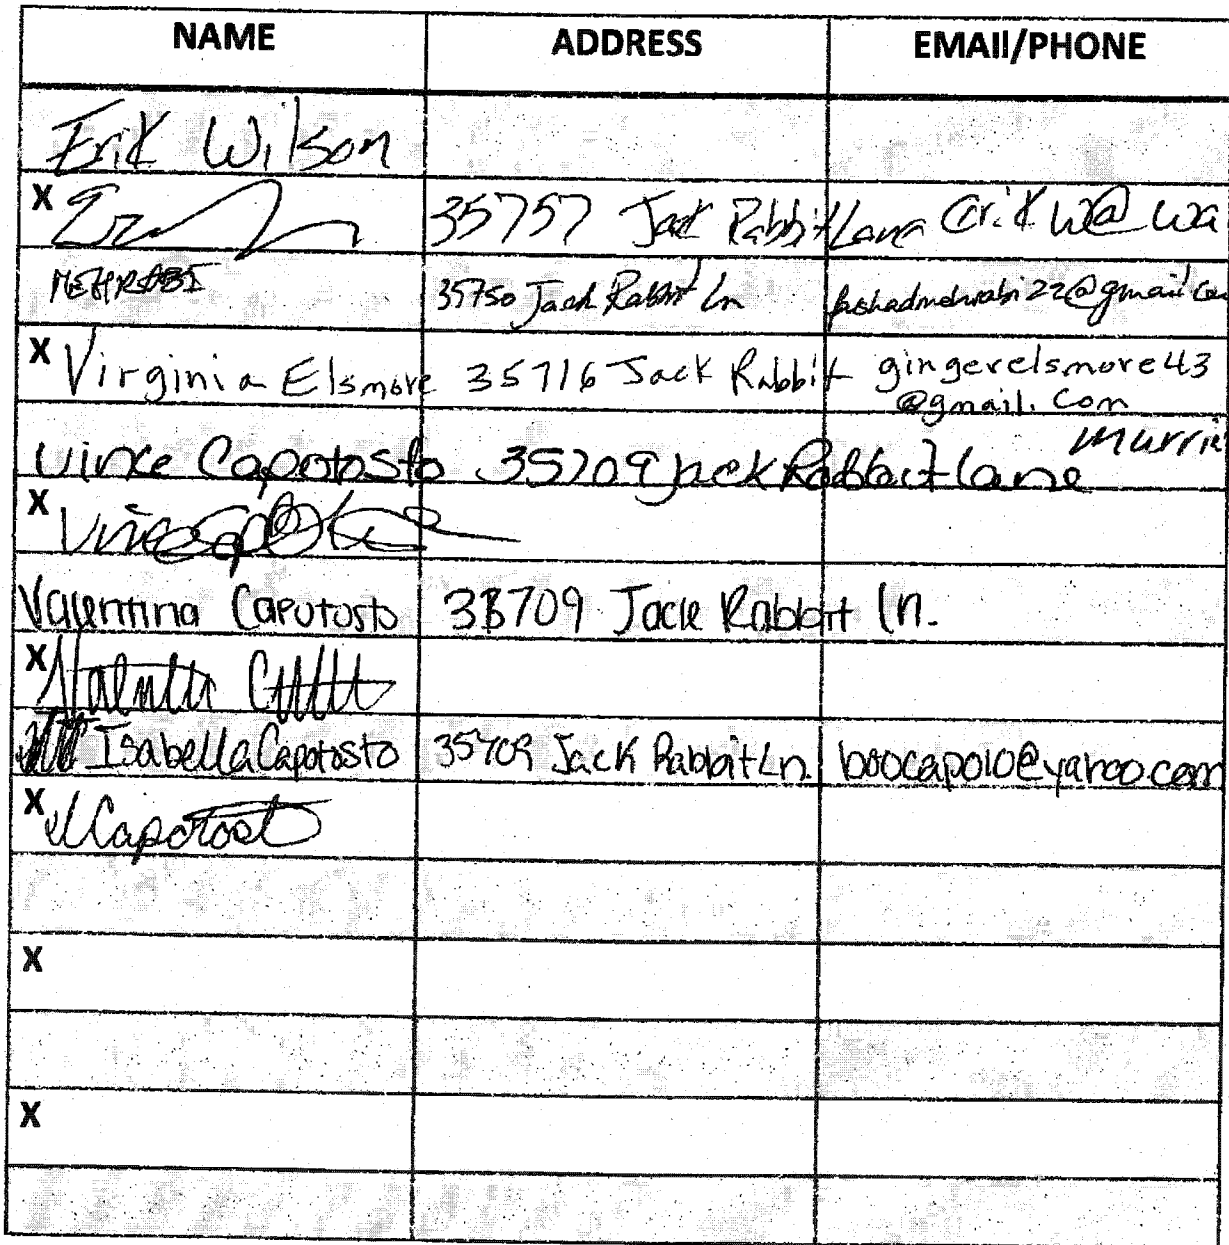 NAME ADDRESS EMAIl/PHONE
Erik Wilson
X 35757 Jack Rabbit Lane erikw@wa
MEHRABI 35750 Jack Rabbit Ln @gmail.com
X Virginia Elsmore 35716 Jack Rabbit gingerelsmore43
@gmail.com
Vince Capotosto 35709 Jack Rabbit lane Murrie
X
Valentina Capotosto 35709 Jack Rabbit Ln.
X
Isabella Capotosto 35709 Jack Rabbit Ln. boocapo10@yahoo.com
X
X
X